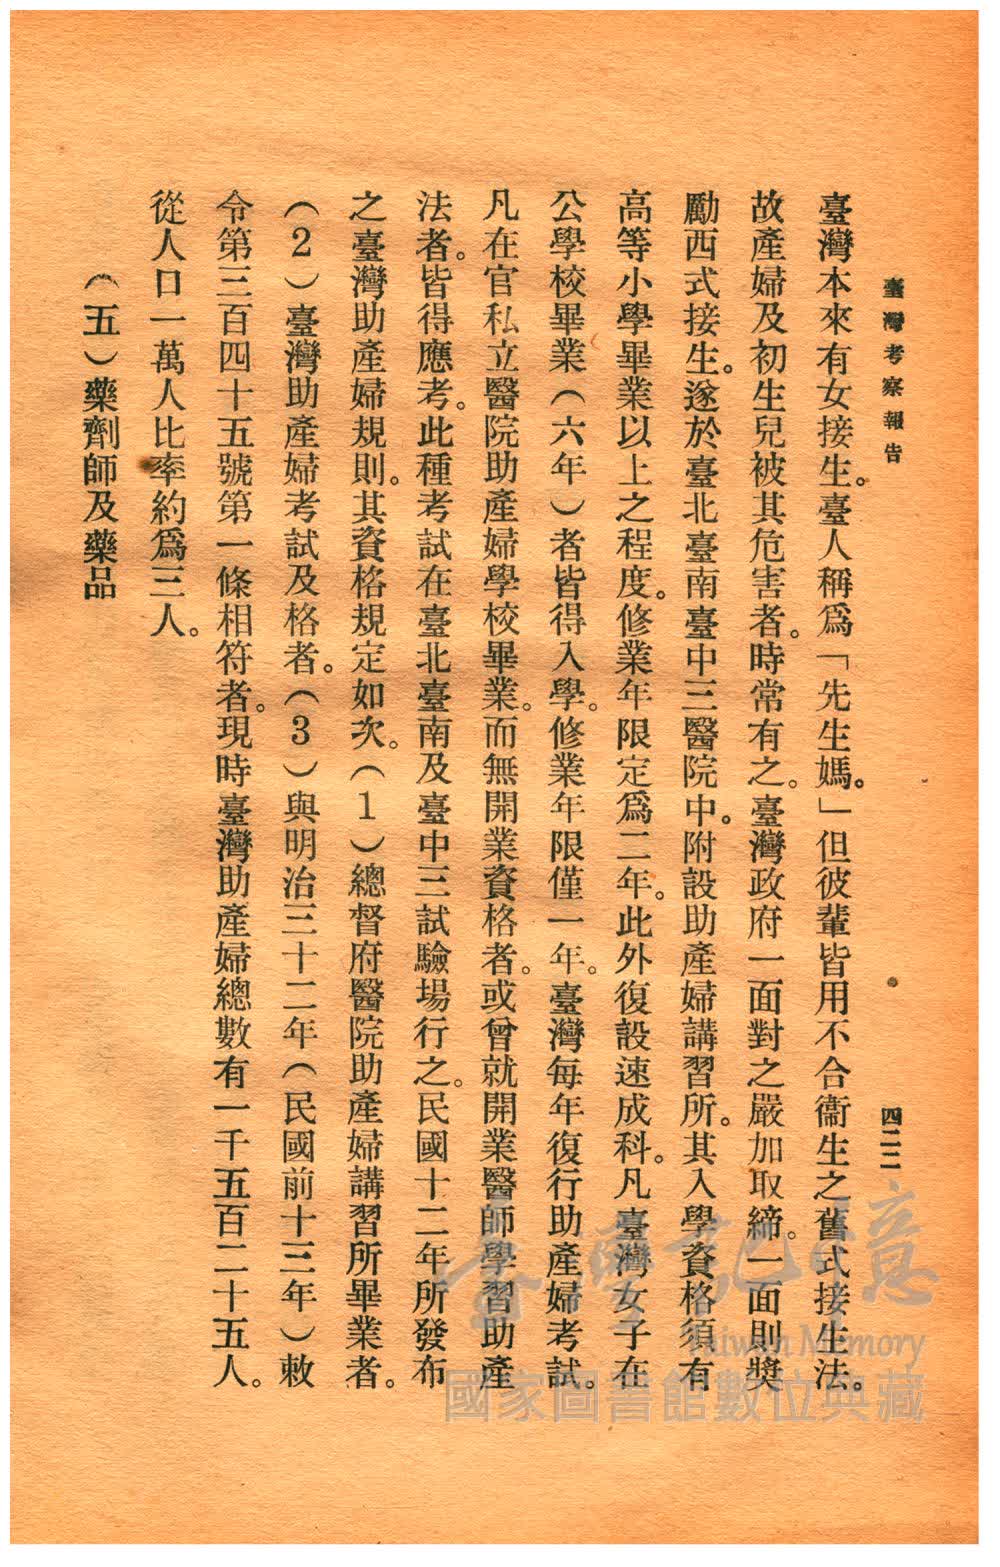 臺灣考察報告
四二二
臺灣本來有女接生。臺人稱爲「先生媽。」但彼輩皆用不合衞生之舊式接生法。
故產婦及初生兒被其危害者。時常有之。臺灣政府一面對之嚴加取締。一面則奬
勵西式接生。遂於臺北臺南臺中三醫院中。附設助產婦講習所。其入學資格須有
高等小學畢業以上之程度。修業年限定爲二年。此外復設速成科。凡臺灣女子在
公學校畢業（六年）者皆得入學。修業年限僅一年。臺灣每年復行助產婦考試。
凡在官私立醫院助產婦學校畢業。而無開業資格者。或曾就開業醫師學習助產
法者。皆得應考。此種考試在臺北臺南及臺中三試驗場行之。民國十二年所發布
之臺灣助產婦規則。其資格規定如次。（1）總督府醫院助產婦講習所畢業者。
（2）臺灣助產婦考試及格者。（3）與明治三十二年（民國前十三年）敕
令第三百四十五號第一條相符者。現時臺灣助產婦總數有一千五百二十五人。
從人口一萬人比率約爲三人。
（五）藥劑師及藥品
臺灣記憶
Taiwan Memory
國家圖書館數位典藏